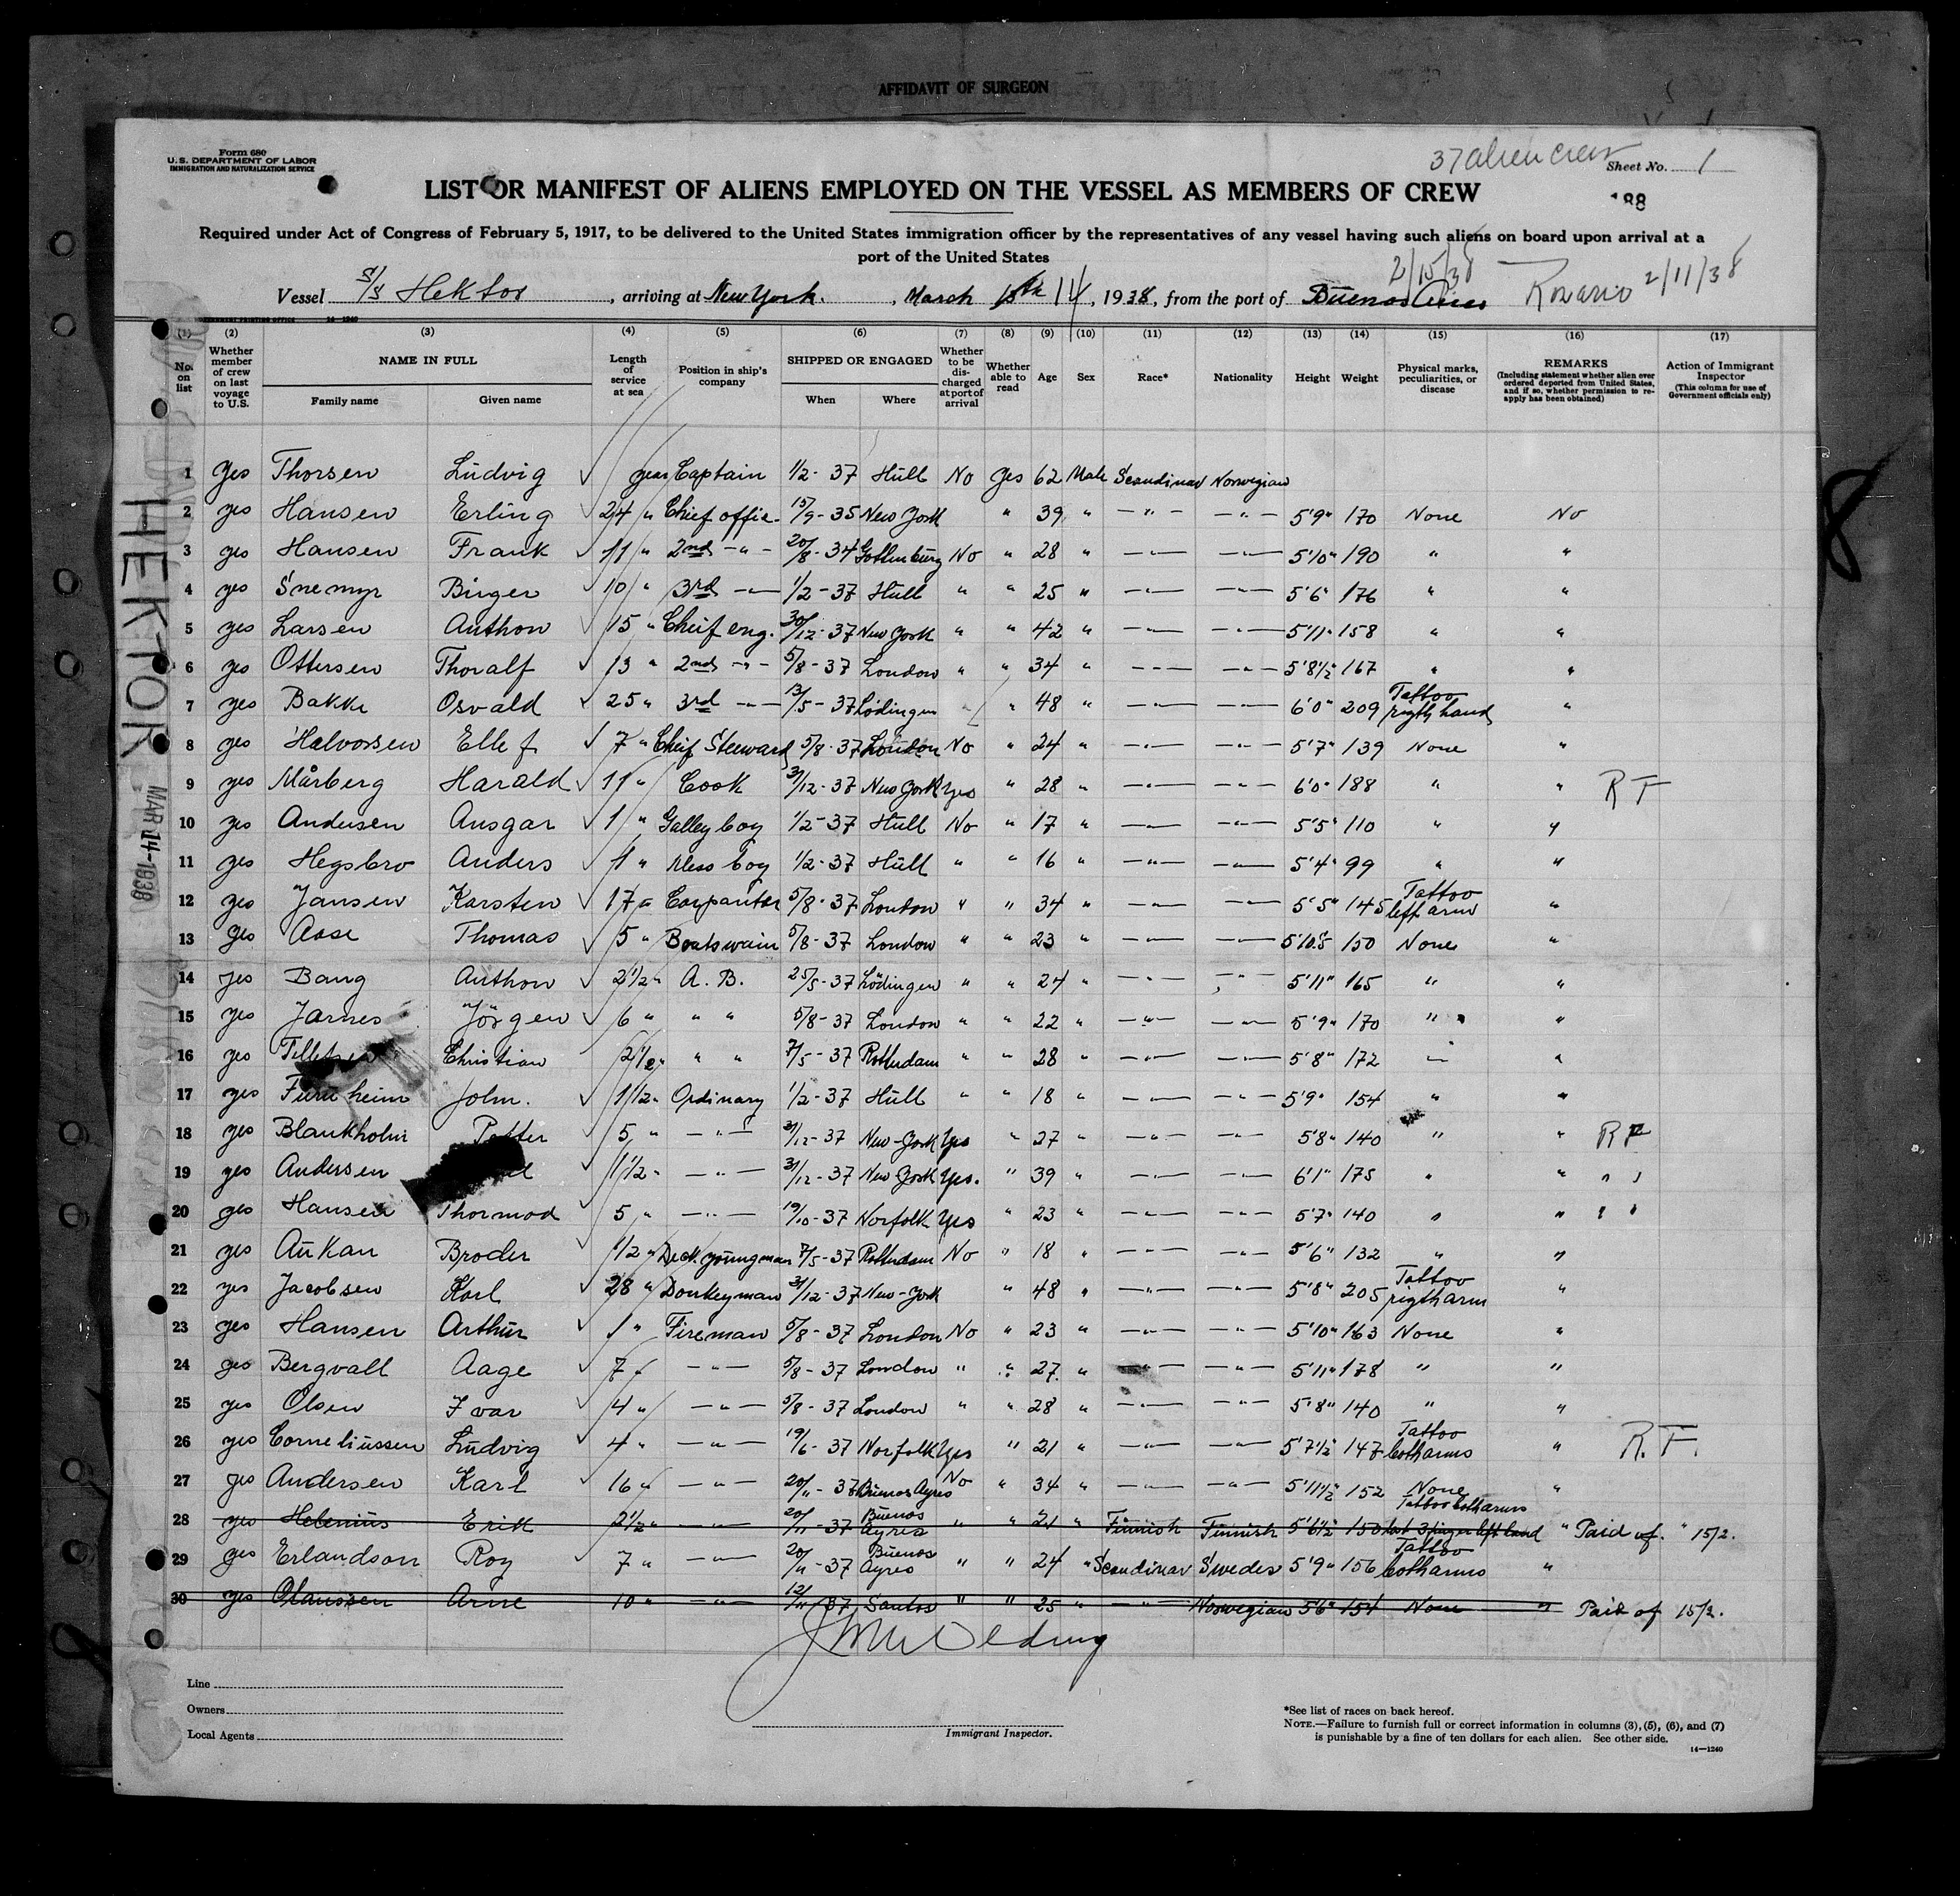 AFFIDAVIT OF SURGEON
Form 680
U.S. DEPARTMENT OF LABOR
IMMIGRATION AND NATURALIZATION SERVICE
37 alien crew
Sheet No. 1
LIST OR MANIFEST OF ALIENS EMPLOYED ON THE VESSEL AS MEMBERS OF CREW
188
Required under Act of Congress of February 5, 1917, to be delivered to the United States immigration officer by the representatives of any vessel having such aliens on board upon arrival at a
port of the United States
2/15/38
Vessel S/S Hektor, arriving at New York., March 15th 14, 1938, from the port of Buenos Aires Rosario 2/11/38
14-1240
(1) (2) (3) (4) (5) (6) (7) (8) (9) (10) (11) (12) (13) (14) (15) (16) (17)
No. on list
Whether member of crew on last voyage to U.S.
NAME IN FULL
Family name Given name
Length of service at sea
Position in ship's company
SHIPPED OR ENGAGED
When Where
Whether to be discharged at port of arrival
Whether able to read
Age
Sex
Race*
Nationality
Height
Weight
Physical marks, peculiarities, or disease
REMARKS
(Including statement whether alien ever ordered deported from United States, and if so, whether permission to reapply has been obtained)
Action of Immigrant Inspector
(This column for use of Government officials only)
HEKTOR
MAR 14-1938
1 yes Thorsen Ludvig years Captain 1/2-37 Hull No yes 62 Male Scandinav Norwegian
2 yes Hansen Erling 24 " Chief offic. 15/9-35 New York " 39 " -"- -"- 5'9" 170 None No
3 yes Hansen Frank 11 " 2nd -"- 20/8-34 Gothenburg No " 28 " -"- -"- 5'10" 190 " "
4 yes Snemyr Birger 10 " 3rd -"- 1/2-37 Hull " " 25 " -"- -"- 5'6" 176 " "
5 yes Larsen Anthon 15 " Cheif eng. 30/12-37 New York " " 42 " -"- -"- 5'11" 158 " "
6 yes Ottersen Thoralf 13 " 2nd -"- 5/8-37 London " " 34 " -"- -"- 5'8½" 167 " "
7 yes Bakke Osvald 25 " 3rd -"- 13/5-37 Lödingen " " 48 " -"- -"- 6'0" 209 Tattoo rigth hand "
8 yes Halvorsen Ellef 7 " Cheif Steward 5/8-37 London No " 24 " -"- -"- 5'7" 139 None "
9 yes Mårberg Harald 11 " Cook 31/12-37 New York Yes " 28 " -"- -"- 6'0" 188 " " RF
10 yes Andersen Ansgar 1 " Galley boy 1/2-37 Hull No " 17 " -"- -"- 5'5" 110 " "
11 yes Hegsbro Anders 1 " Mess boy 1/2-37 Hull " " 16 " -"- -"- 5'4" 99 " "
12 yes Jansen Karsten 17 " Carpanter 5/8-37 London " " 34 " -"- -"- 5'5" 145 Tattoo left arm "
13 yes Aase Thomas 5 " Boatswain 5/8-37 London " " 23 " -"- -"- 5'10.5 150 None "
14 yes Bang Anthon 2½ " A. B. 25/5-37 Lödingen " " 24 " -"- -"- 5'11" 165 " "
15 yes Jarnes Jörgen 6 " " " 5/8-37 London " " 22 " -"- -"- 5'9" 170 " "
16 yes Christian 2½ " " " 7/5-37 Rotterdam " " 28 " -"- -"- 5'8" 172 " "
17 yes Furuheim John. 1½ " Ordinary 1/2-37 Hull " " 18 " -"- -"- 5'9" 154 " "
18 yes Blankholm Petter 5 " -"- 31/12-37 New-York Yes " 27 " -"- -"- 5'8" 140 " " RF
19 yes Andersen 1½ " -"- 31/12-37 New York Yes. " 39 " -"- -"- 6'1" 175 " " " "
20 yes Hansen Thormod 5 " -"- 19/10-37 Norfolk Yes " 23 " -"- -"- 5'7" 140 " " " "
21 yes Aukan Broder 1/2 " Deck youngman 7/5-37 Rotterdam No " 18 " -"- -"- 5'6" 132 " "
22 yes Jacobsen Karl 28 " Donkeyman 31/12-37 New-York " 48 " -"- -"- 5'8" 205 Tattoo rigth arm "
23 yes Hansen Arthur 1 " Fireman 5/8-37 London No " 23 " -"- -"- 5'10" 163 None "
24 yes Bergvall Aage 7 " -"- 5/8-37 London " " 27 " -"- -"- 5'11" 178 " "
25 yes Olsen Ivar 4 " -"- 5/8-37 London " " 28 " -"- -"- 5'8" 140 " "
26 yes Corneliussen Ludvig 4 " -"- 19/6-37 Norfolk Yes " 21 " -"- -"- 5'7½" 147 Tattoo botharms " R.F.
27 yes Andersen Karl 16 " -"- 20/11-37 Buenos Ayres No " 34 " -"- -"- 5'11½" 152 None "
28 yes Helenius Erik 2½ " -"- 20/11-37 Buenos Ayres " " 21 " Finnish Finnish 5'6½" 150 Tattoo botharms lost 3 finger left hand " Paid of. " 15/2.
29 yes Erlandson Roy 7 " -"- 20/11-37 Buenos Ayres " " 24 " Scandinav Swedes 5'9" 156 Tattoo botharms "
30 yes Olaussen Arne 10 " -"- 12/11-37 Santos " " 25 " -"- Norwegian 5'6" 154 None " Paid of 15/2.
Line
Owners
Local Agents
Immigrant Inspector.
*See list of races on back hereof.
NOTE.—Failure to furnish full or correct information in columns (3), (5), (6), and (7)
is punishable by a fine of ten dollars for each alien. See other side.
14-1240